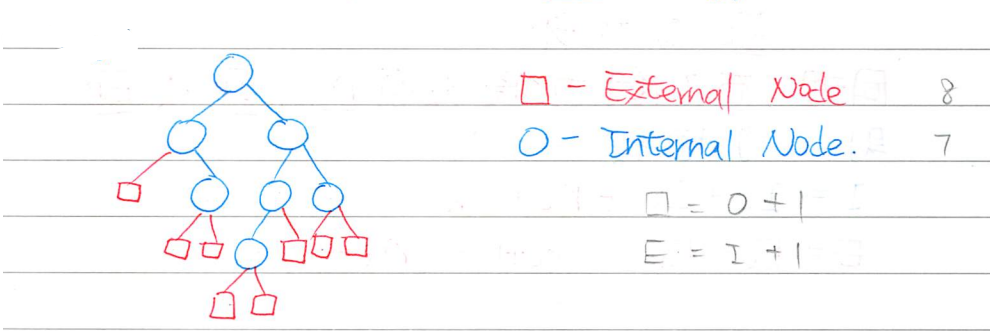 □ - External Node 8
○ - Internal Node. 7
□ = ○ + 1
E = I + 1